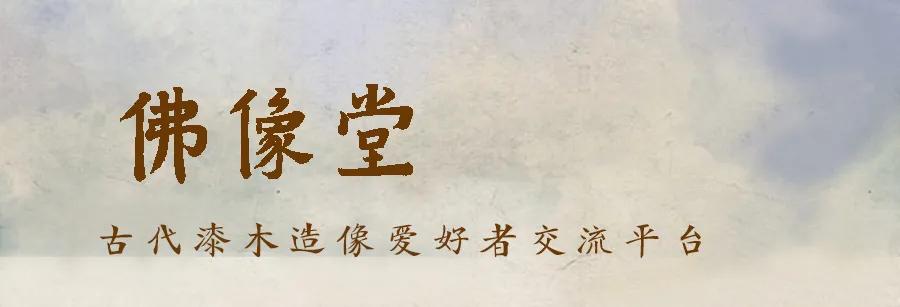 佛像堂
古代漆木造像爱好者交流平台